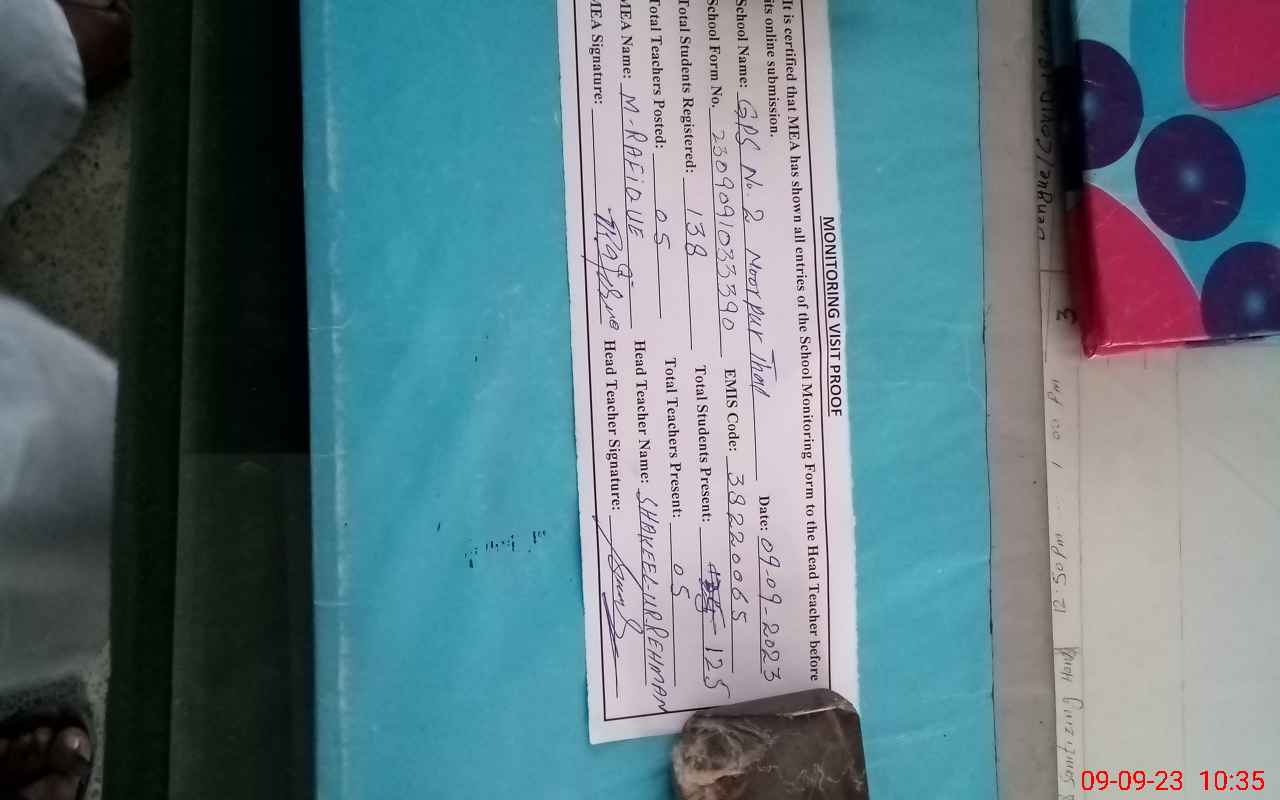 MONITORING VISIT PROOF
It is certified that MEA has shown all entries of the School Monitoring Form to the Head Teacher before
its online submission.
School Name: GPS No. 2 Noorpur Thal Date: 09-09-2023
School Form No. 2309091033390 EMIS Code: 38220065
Total Students Registered: 138 Total Students Present: 125
Total Teachers Posted: 05 Total Teachers Present: 05
MEA Name: M-RAFIQUE Head Teacher Name: SHAKEEL-UR REHMAN
MEA Signature: Head Teacher Signature:
3
09-09-23 10:35